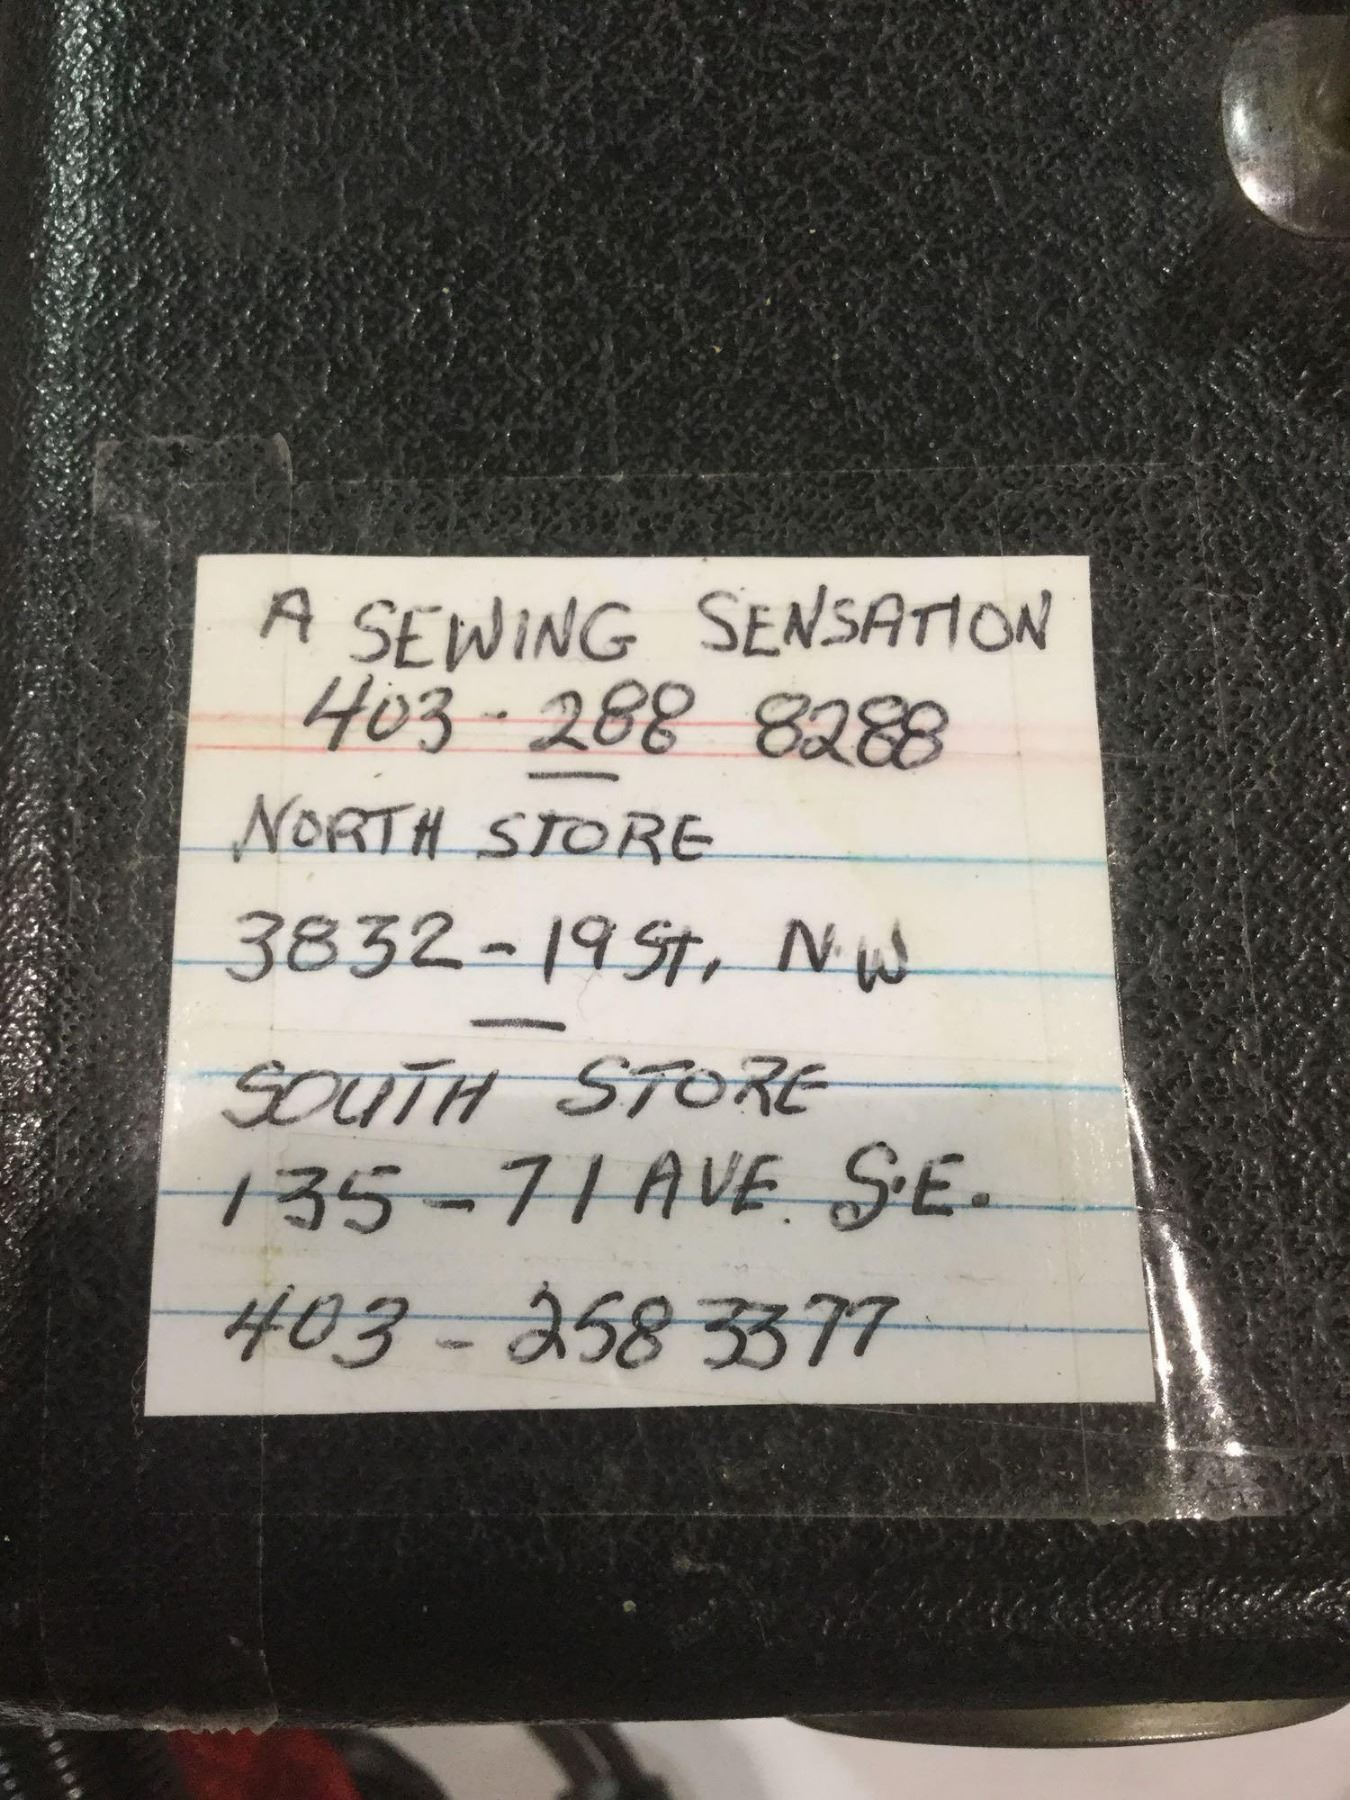 A SEWING SENSATION
403 - 288 8288
NORTH STORE
3832 - 19 St, N.W
SOUTH STORE
135 - 71 AVE. S.E.
403 - 258 3377